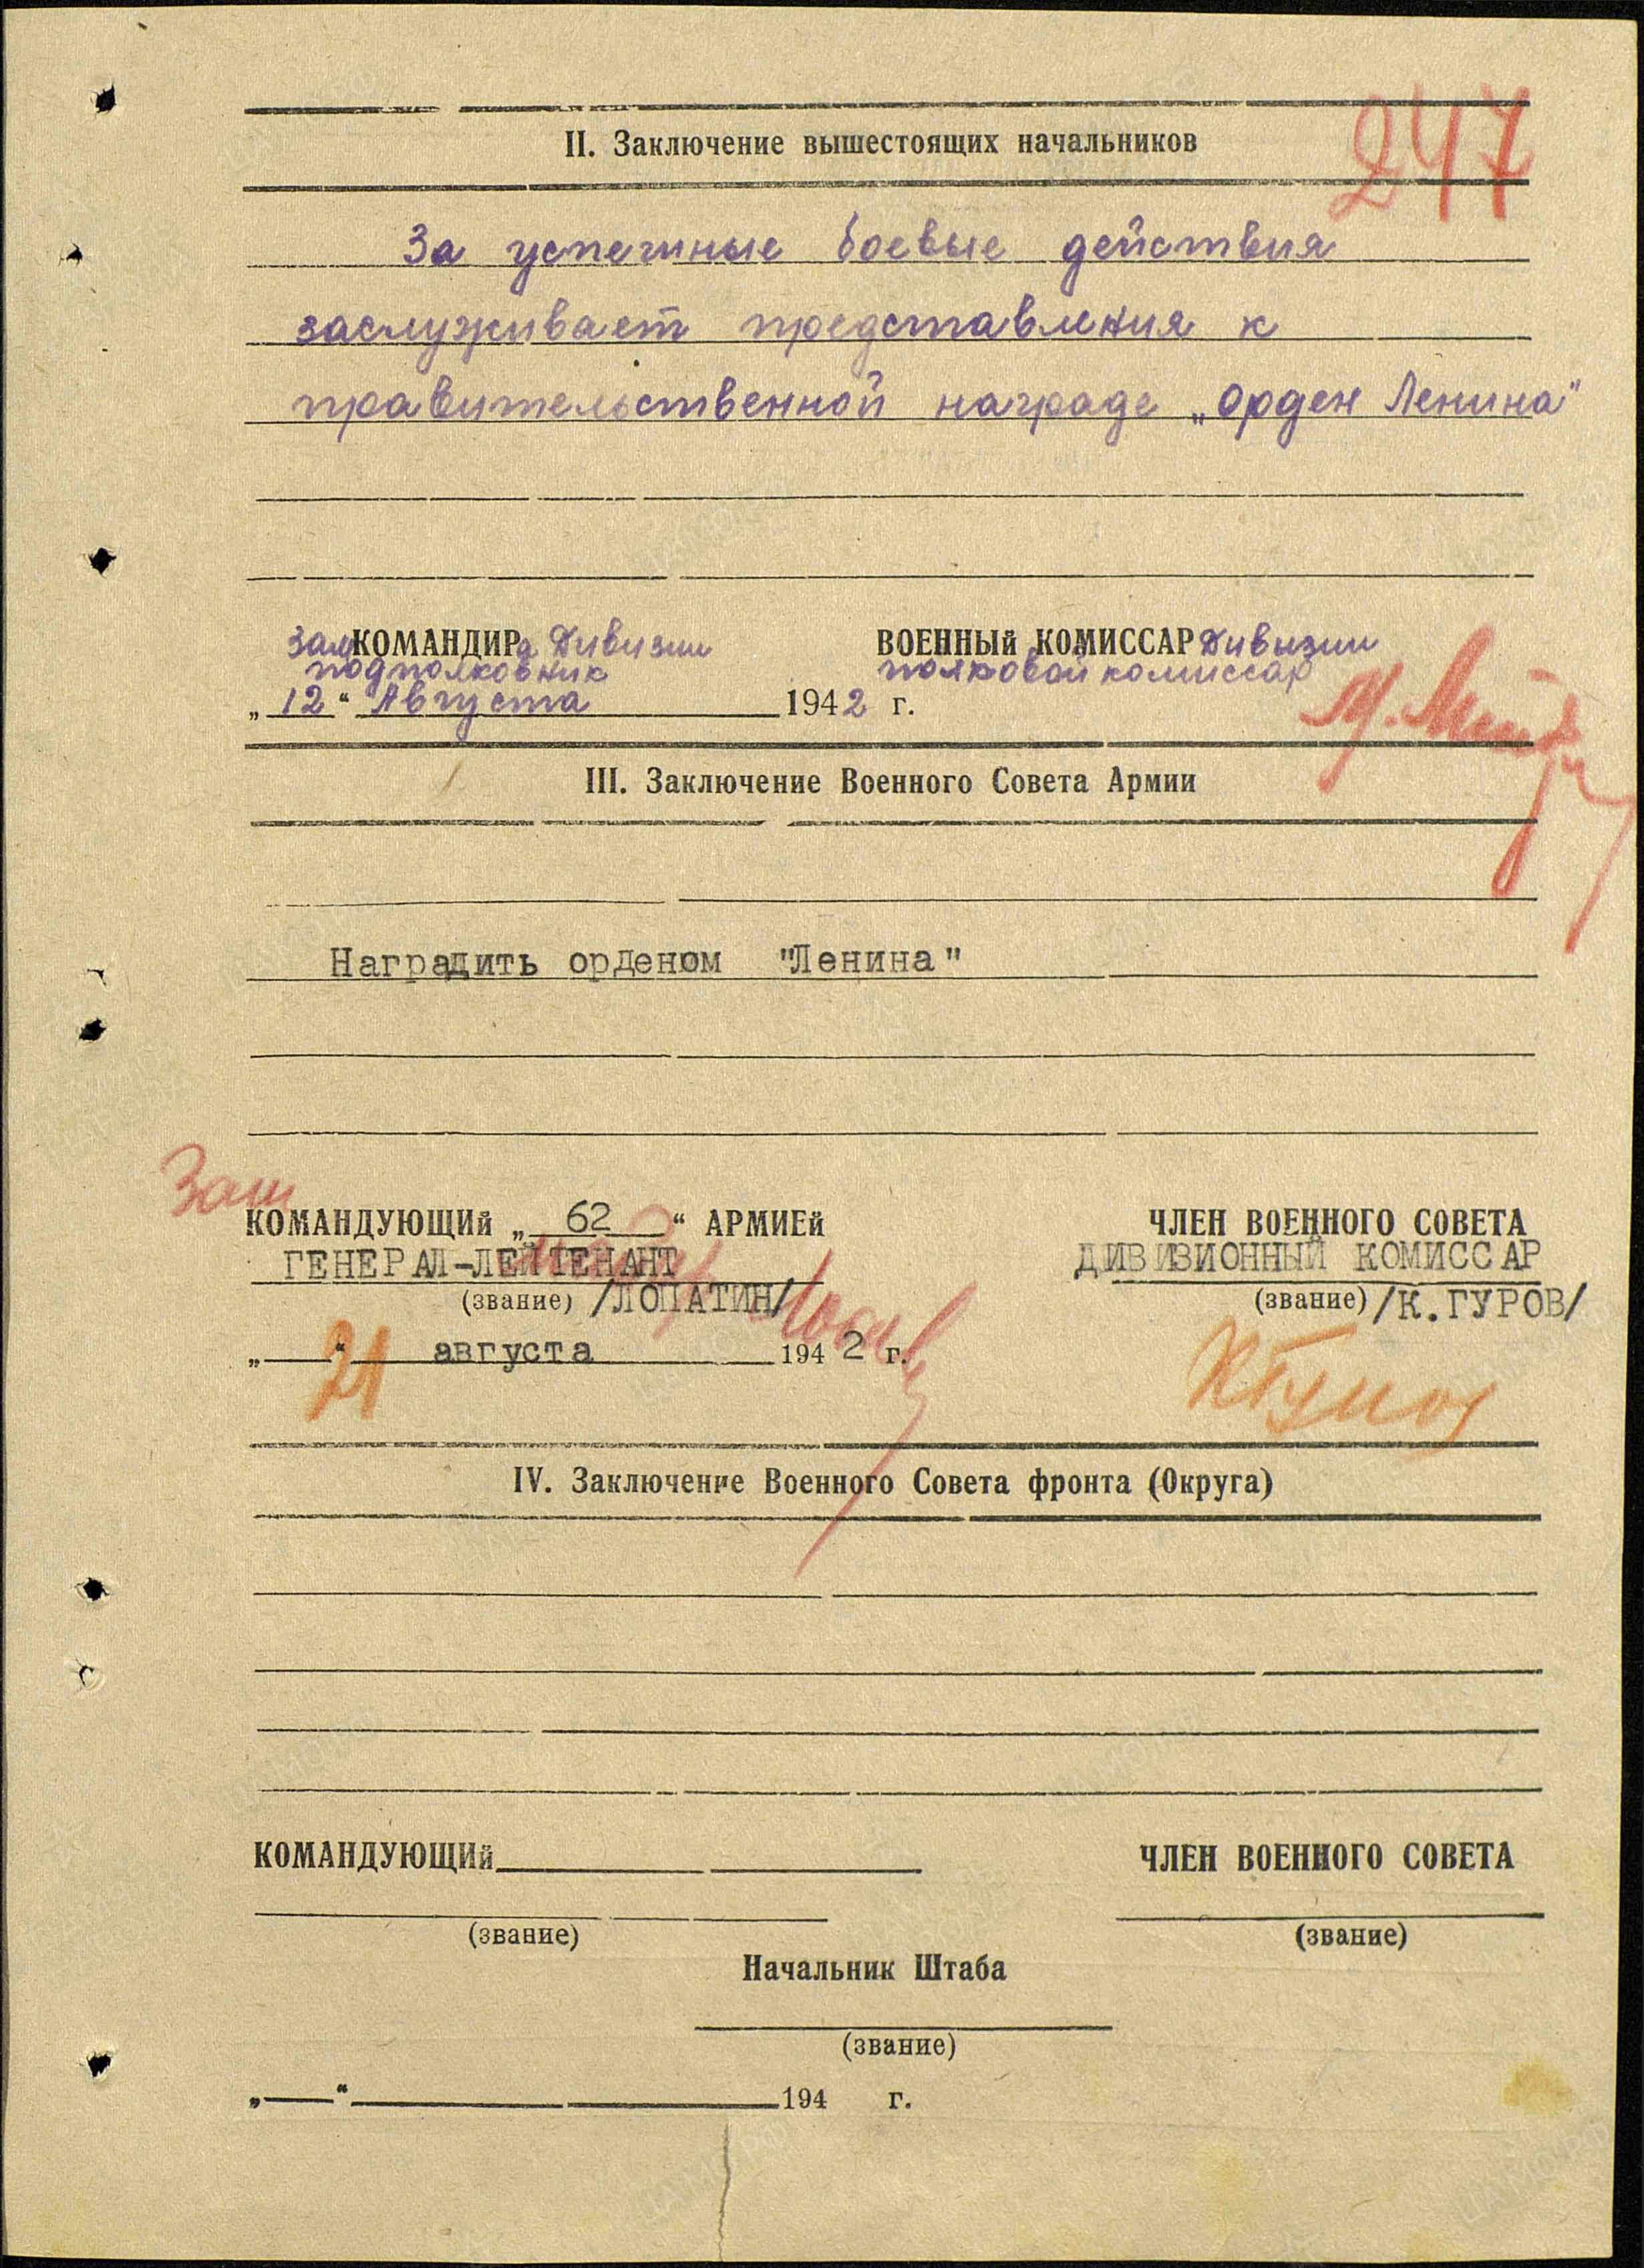 247
II. Заключение вышестоящих начальников
За успешные боевые действия
заслуживает представления к
правительственной награде „орден Ленина"
Зам КОМАНДИРа Дивизии
подполковник
„12" Августа 1942 г.
ВОЕННЫЙ КОМИССАР Дивизии
полковой комиссар
III. Заключение Военного Совета Армии
Наградить орденом "Ленина"
Зам
КОМАНДУЮЩИЙ „62" АРМИЕЙ
ГЕНЕРАЛ-ЛЕЙТЕНАНТ
(звание) /ЛОПАТИН/
„21" августа 1942 г.
ЧЛЕН ВОЕННОГО СОВЕТА
ДИВИЗИОННЫЙ КОМИССАР
(звание) /К.ГУРОВ/
IV. Заключение Военного Совета фронта (Округа)
КОМАНДУЮЩИЙ
(звание)
ЧЛЕН ВОЕННОГО СОВЕТА
(звание)
Начальник Штаба
(звание)
„ " 194 г.